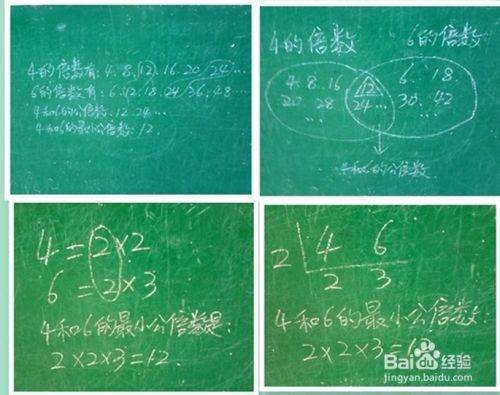 4的倍数有:4.8.12.16.20.24…
6的倍数有:6.12.18.24.36.48…
4和6的公倍数:12.24…
4和6的最小公倍数:12.
4的倍数
6的倍数
4.8.16
20.28
…
12
24…
6.18
30.42
…
4和6的公倍数
4=2×2
6=2×3
4和6的最小公倍数是:
2×2×3=12.
2 4 6
2 3
4和6的最小公倍数:
2×2×3=
Baidu经验
jingyan.baidu.com